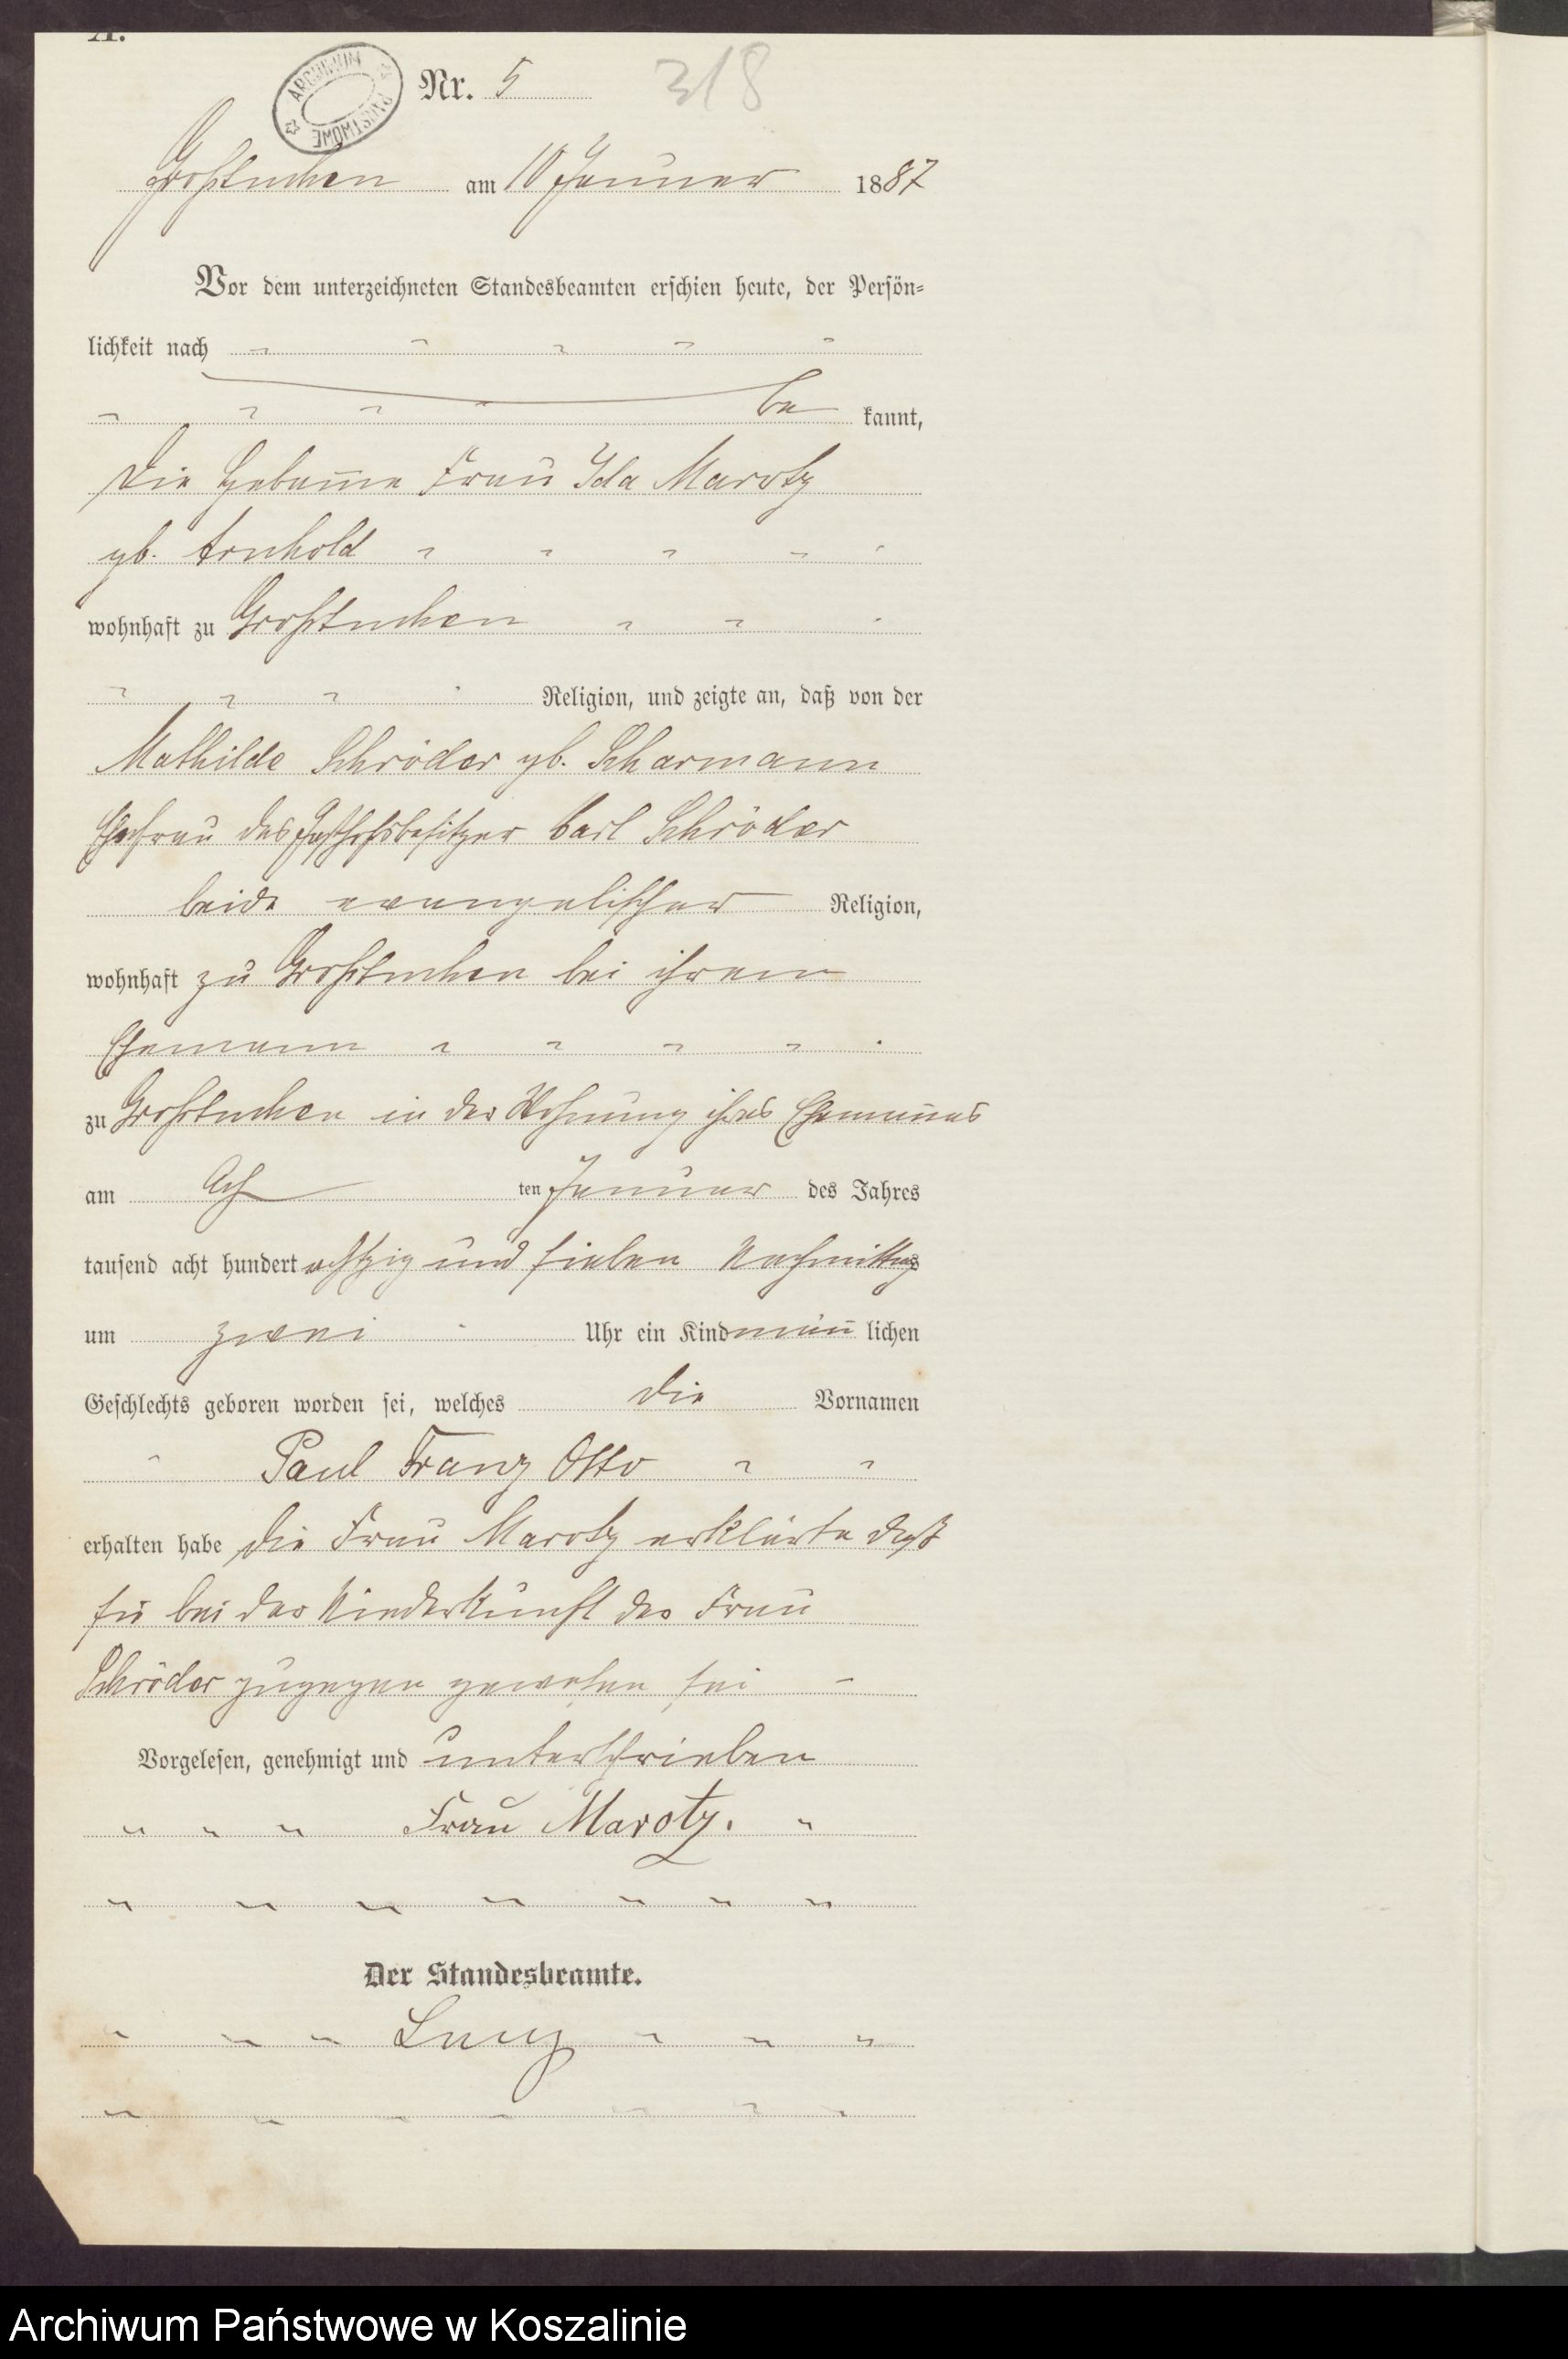 A.
ARCHIWUM PAŃSTWOWE
Nr. 5 318
Großtuchen am 10 Januar 1887
Vor dem unterzeichneten Standesbeamten erschien heute, der Persön-
lichkeit nach
be kannt,
die Hebamme Frau Ida Marotz
gb. Arnhold
wohnhaft zu Großtuchen
Religion, und zeigte an, daß von der
Mathilde Schröder gb. Scharmann
Ehefrau des Gasthofsbesitzer Carl Schröder
beide evangelischer Religion,
wohnhaft zu Großtuchen bei ihrem
Ehemann
zu Großtuchen in der Wohnung ihres Ehemannes
am Ach ten Januar des Jahres
tausend acht hundert achtzig und sieben Nachmittags
um zwei Uhr ein Kind männ lichen
Geschlechts geboren worden sei, welches die Vornamen
Paul Franz Otto
erhalten habe die Frau Marotz erklärte daß
sie bei der Niederkunft der Frau
Schröder zugegen gewesen sei
Vorgelesen, genehmigt und unterschrieben
Frau Marotz.
Der Standesbeamte.
Archiwum Państwowe w Koszalinie